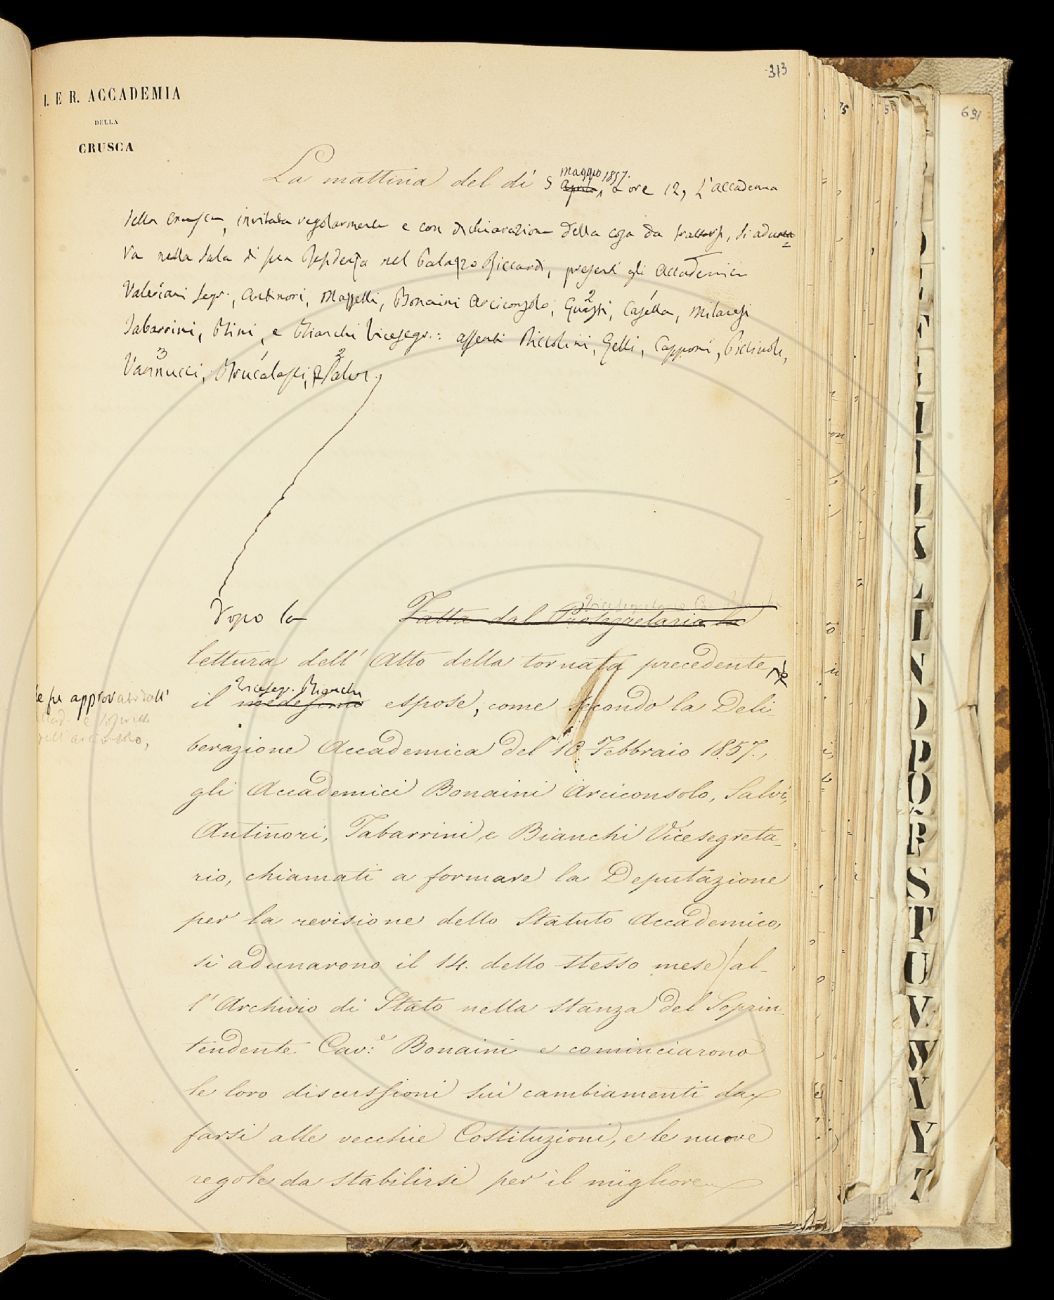 313
I. E R. ACCADEMIA
DELLA
CRUSCA
maggio 1857.
La mattina del dì 5 aprile, a ore 12, L'accademia
della Crusca, invitata regolarmente e con dichiarazione della cosa da trattarsi, si aduna=
va nella Sala di sua Residenza nel Palazzo Riccardi, presenti gli Accademici
Valeriani Segr., Antinori, Masselli, Bonaini Arciconsolo, Guasti, Casella, Milanesi
Tabarrini, Bini, e Bianchi Vicesegr.: assenti Piccolini, Gelli, Capponi,
Vannucci, Brucalassi, e Salvi.
Dopo la Fatta dal Prosegretario la
lettura dell'Atto della tornata precedente,
Vicesegr. Bianchi
il medesimo espose, come secondo la Deli
che fu approvato dall'
berazione Accademica del 10 Febbraio 1857.,
gli Accademici Bonaini Arciconsolo, Salvi,
Antinori, Tabarrini, e Bianchi Vicesegreta-
rio, chiamati a formare la Deputazione
per la revisione dello Statuto Accademico,
si adunarono il 14. dello stesso mese al-
l'Archivio di Stato nella stanza del Soprin-
tendente Cav.e Bonaini e cominciarono
le loro discussioni sui cambiamenti da
farsi alle vecchie Costituzioni, e le nuove
regole da stabilirsi per il migliore
691